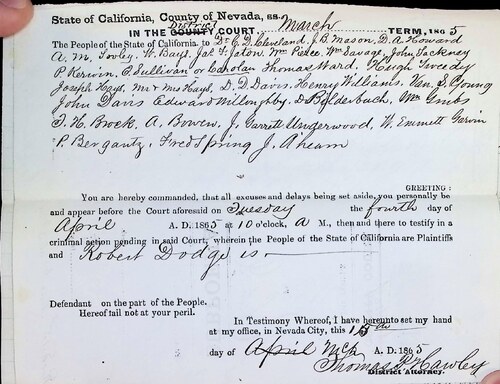 State of California, County of Nevada, ss.
District
IN THE COUNTY COURT, March TERM, 1865
The People of the State of California to Dr C. D. Cleveland, J. B. Mason, D. A. Howard
A. M. Fowley, W. Bays, Jas F. Eaton, Wm Peirce, Wm Savage, John Lackney
P Kerwin, E Sullivan or Calolan Thomas Ward, Hugh Tweedy
Joseph Hays, Mr & Mrs Hays, D. D. Davis, Henry Williams, Van E. Young
John Davis Edward Willoughby, D Bilderbuch, Wm Grubs
J. H. Brock, A. Bowen, J. Garrett Underwood, W. Emmett Garvin
P. Bergantz, Fred Spring J. Ahearn
GREETING:
You are hereby commanded, that all excuses and delays being set aside, you personally be
and appear before the Court aforesaid on Tuesday the fourth day of
April A. D. 1865 at 10 o'clock, A M., then and there to testify in a
criminal action pending in said Court, wherein the People of the State of California are Plaintiffs
and Robert Dodge is
Defendant on the part of the People.
Hereof fail not at your peril.
In Testimony Whereof, I have hereunto set my hand
at my office, in Nevada City, this 15th
day of April Mch A. D. 1865
Thomas P. Hawley
District Attorney.